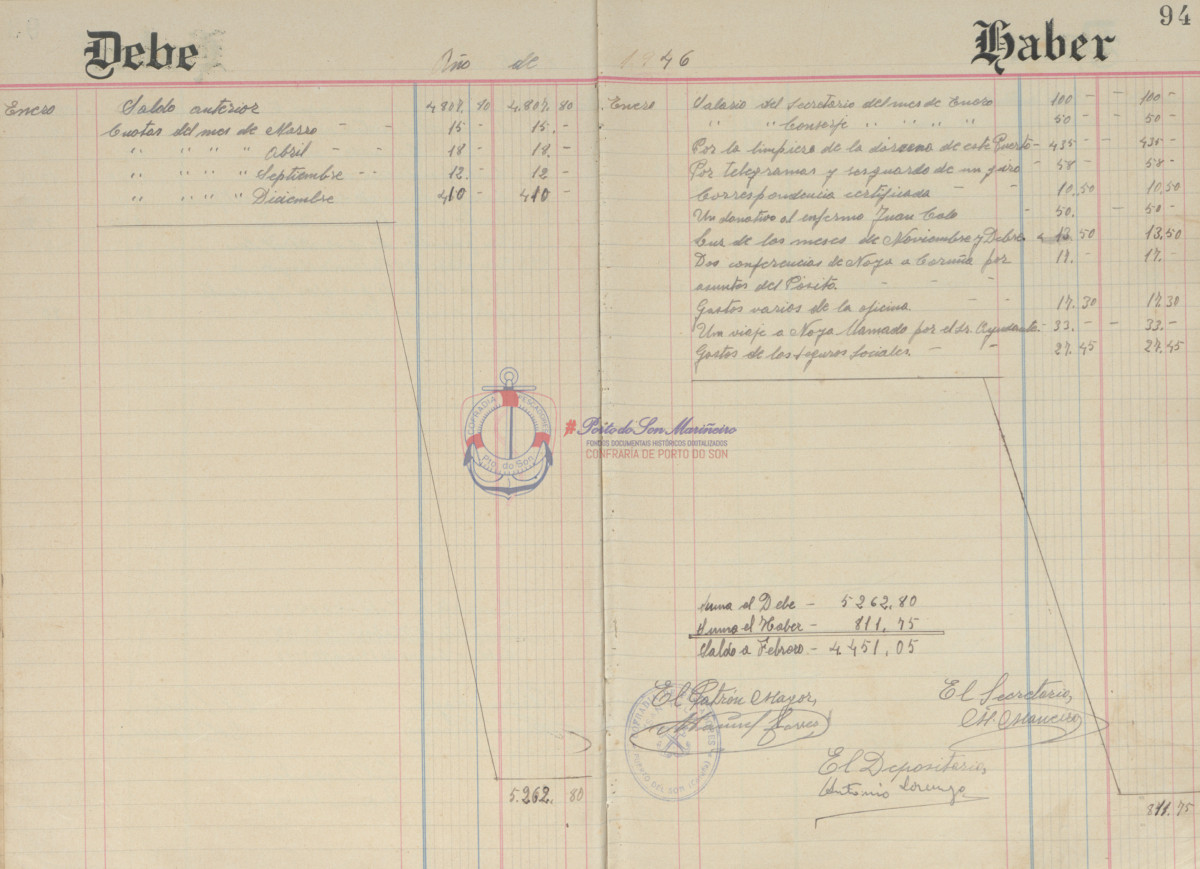 94
Debe
Año de 1946
Haber
Enero Saldo anterior 4.807. 80 4.807. 80
Cuotas del mes de Marzo - - 15 - 15. -
" " " " Abril - 18 - 18. -
" " " " Septiembre - - 12. - 12 -
" " " " Diciembre 410 - 410 -
5.262. 80
Enero Salario del Secretario del mes de Enero 100 - - 100 -
" " Conserje " " " " 50 - - 50 -
Por la limpieza de la darsena de este Puerto - 435 - - 435 -
Por telegramas y resguardo de un giro 58 - 58 -
Correspondencia certificada - - 10,50 10,50
Un donativo al enfermo Juan - 50. - 50 -
Luz de los meses de Noviembre y Dcbre 13.50 13.50
Dos conferencias de Noya a Coruña por
asuntos del Pósito. - - - 17. - 17. -
Gastos varios de la oficina. - - 17.30 17.30
Un viaje a Noya llamado por el Sr. Ayudante. - 33. - - 33. -
Gastos de los seguros sociales. - - 27.45 27.45
Suma el Debe - 5 262,80
Suma el Haber - 811,75
Saldo a Febrero - 4 451,05
El Patrón Mayor,
El Secretario,
El Depositario,
Antonio Lorenzo
811.75
COFRADIA PESCADORES
Pto. do Son
#Porto do Son Mariñeiro
FONDOS DOCUMENTAIS HISTÓRICOS DIXITALIZADOS
CONFRARÍA DE PORTO DO SON